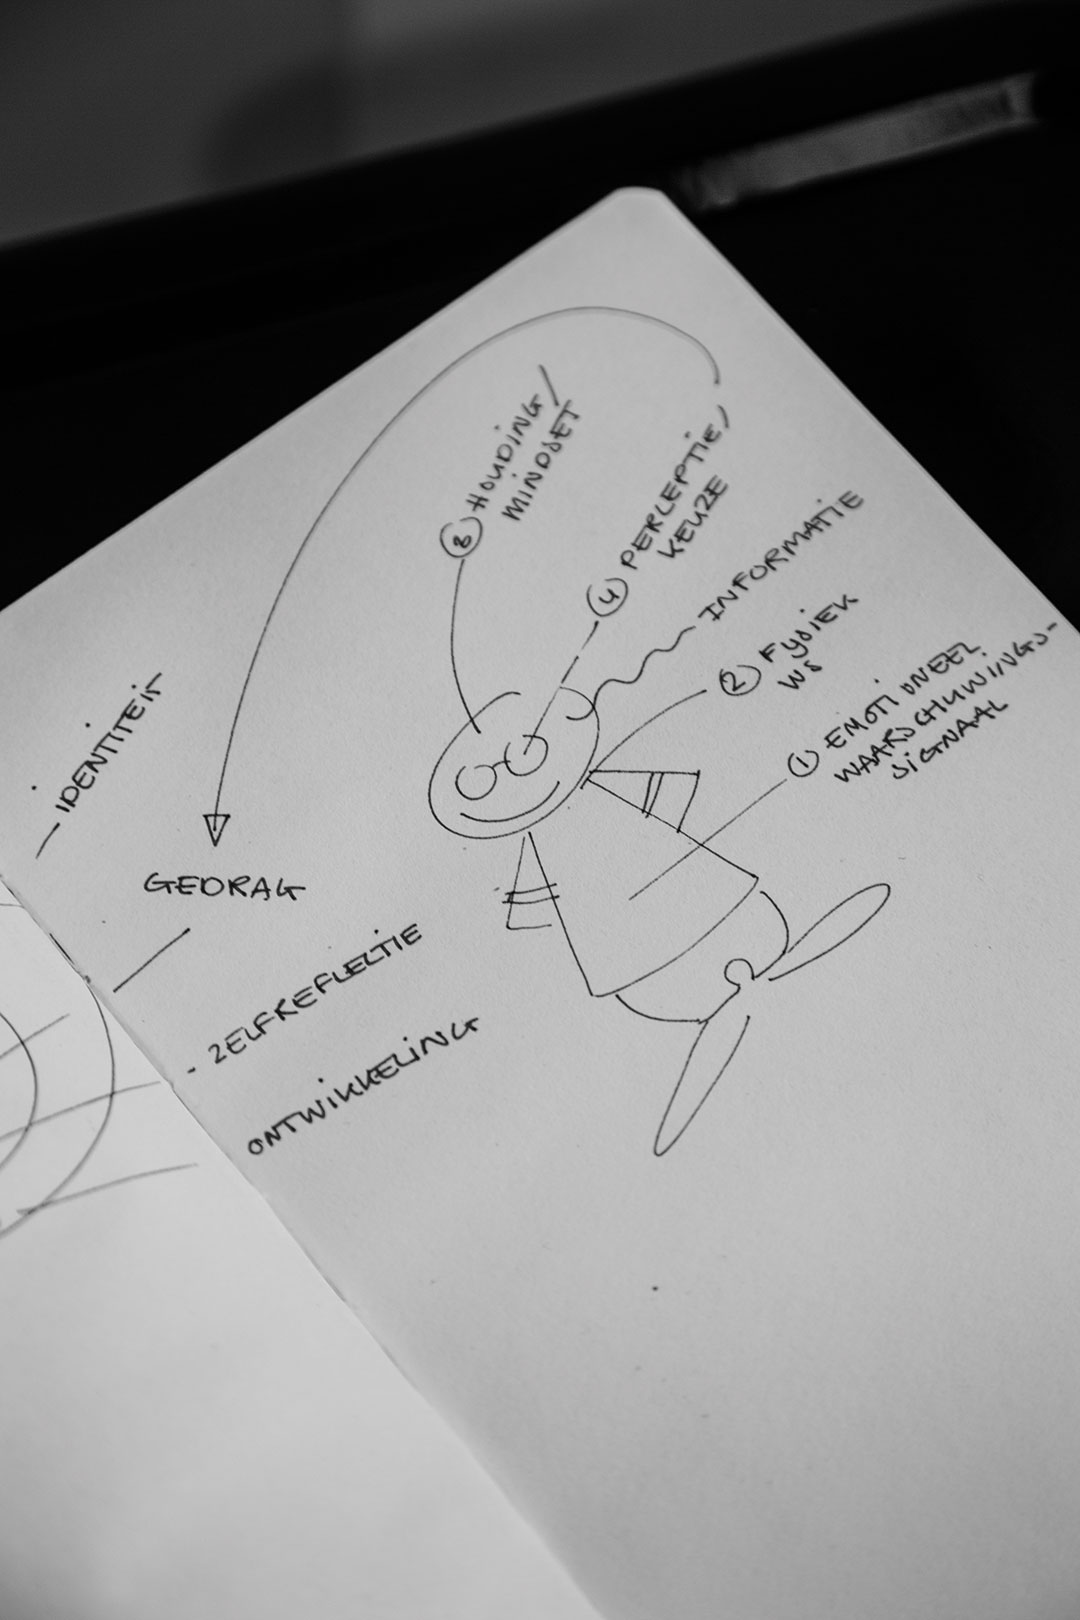 ③ HOUDING/
MINDSET
④ PERCEPTIE/
KEUZE
INFORMATIE
② FYSIEK
WS
① EMOTIONEEL
WAARSCHUWINGS-
SIGNAAL
- IDENTITEIT
GEDRAG
- ZELFREFLECTIE
ONTWIKKELING